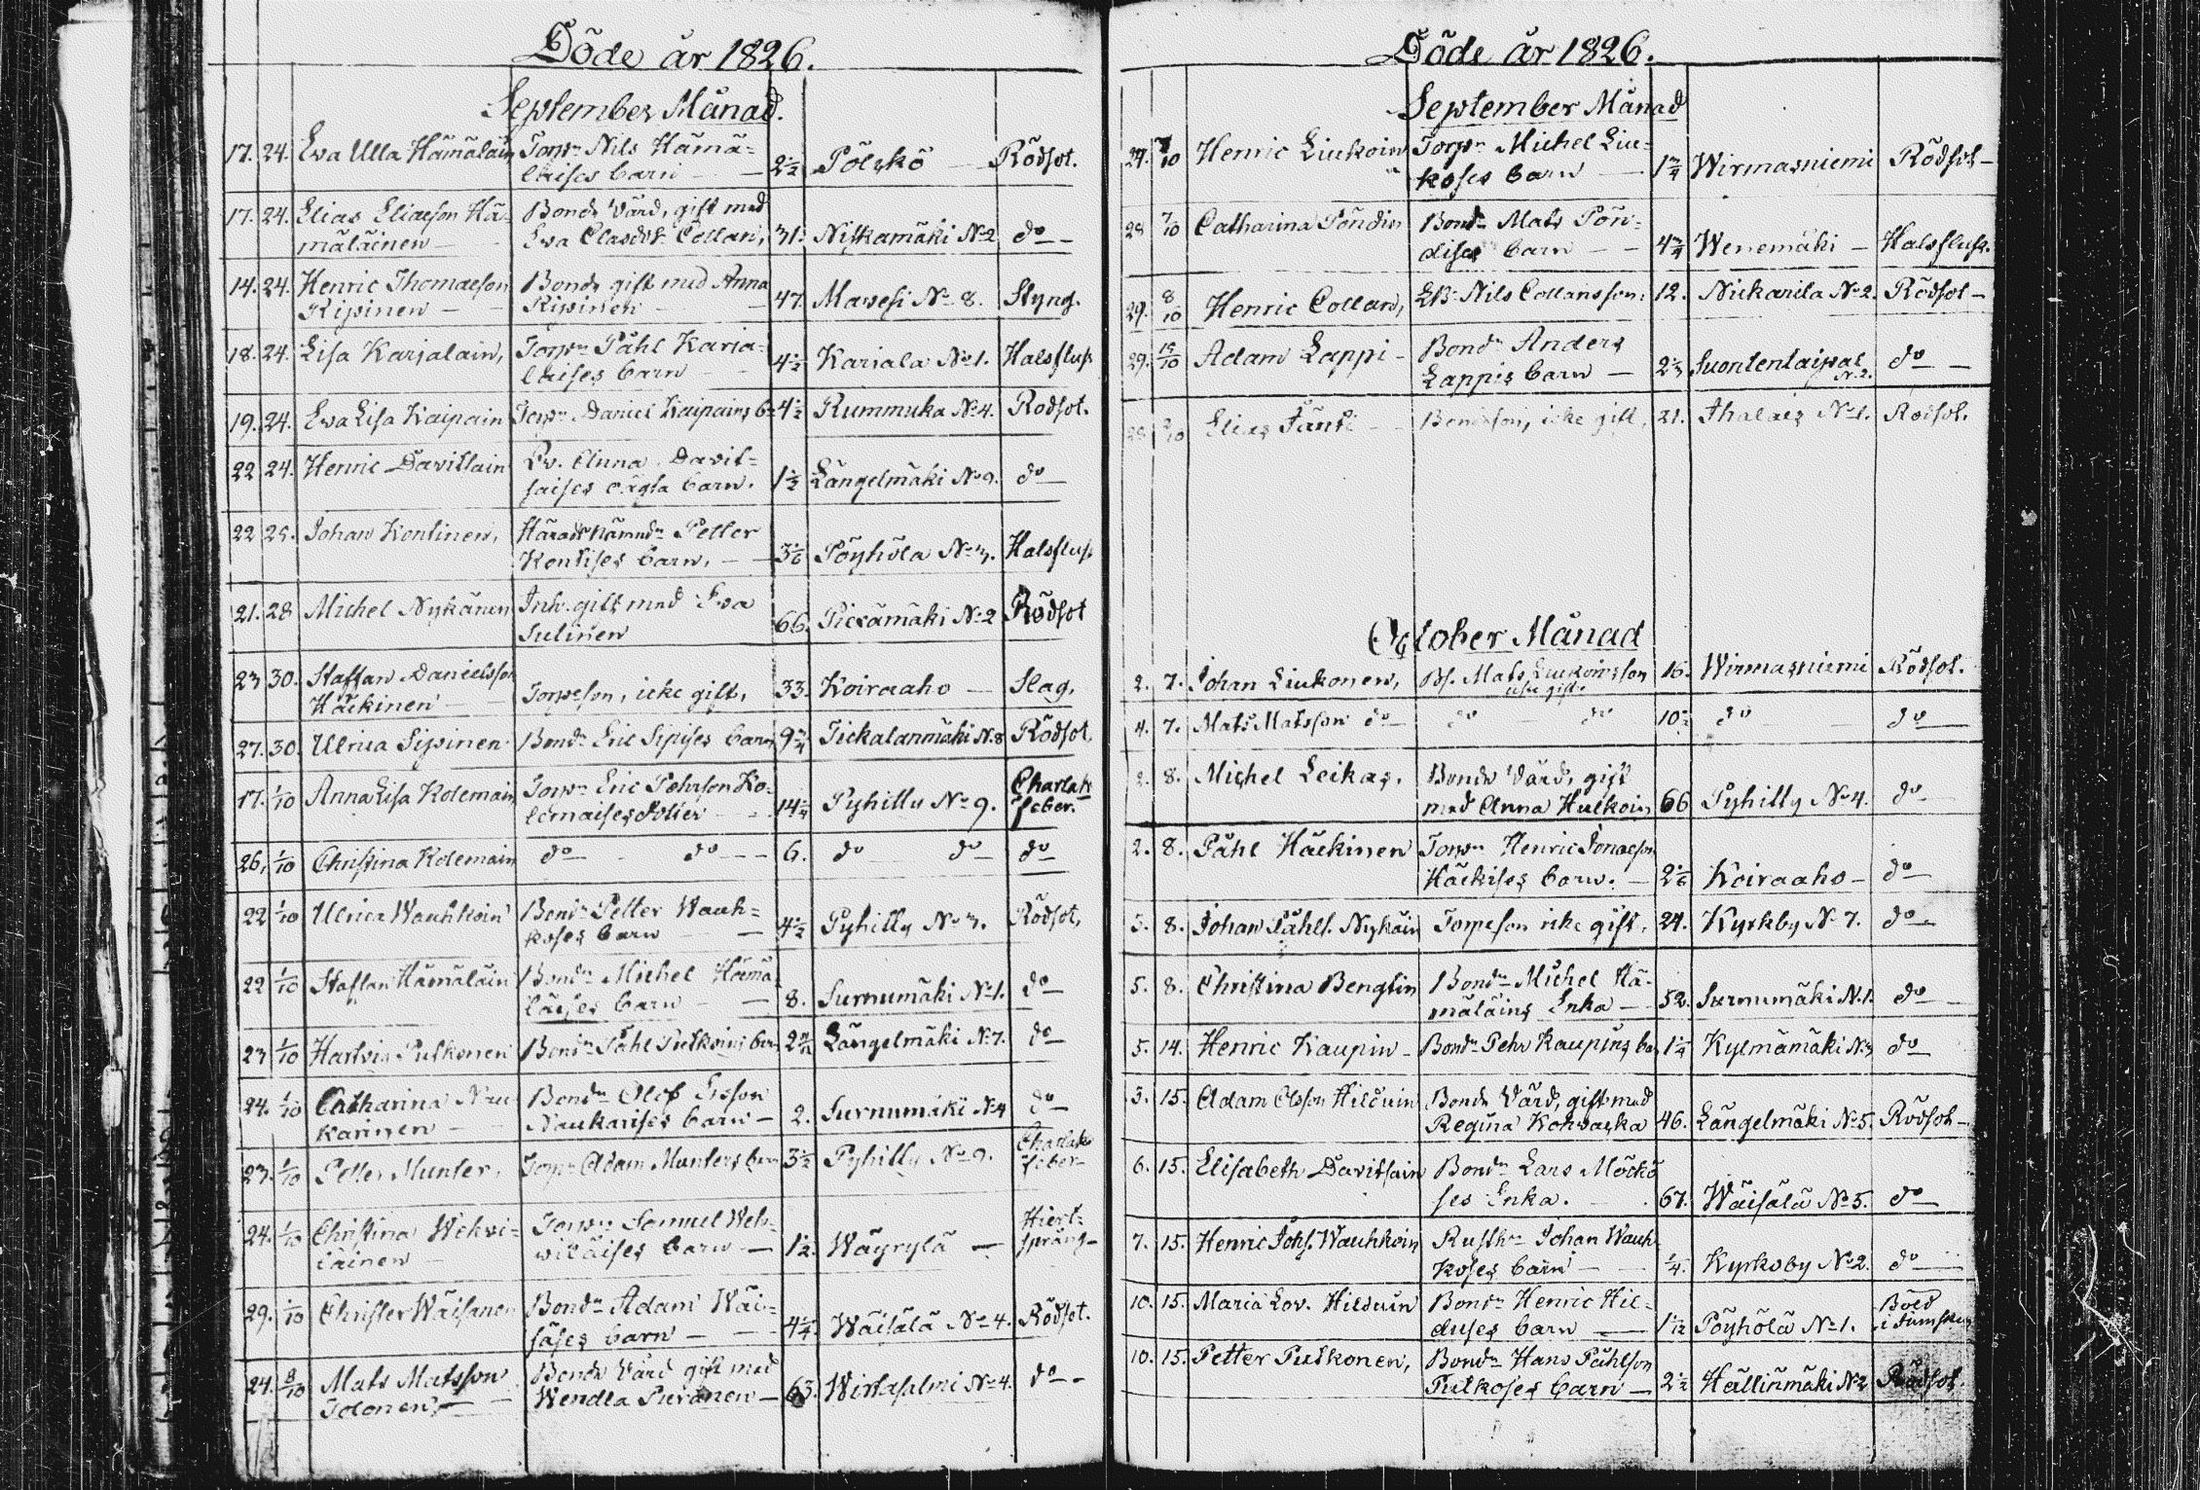 Döde år 1826.
September Månad.
17. 24. Ewa Ulla Hämäläin Torpn Nils Hämä=
läises barn 2½ Pölskö Rödsot.
17. 24. Elias Eliaeson Hä= Bonde Värd, gift med
mäläinen Ewa Clasdotr Collan, 31. Niskamäki No 2 do
14. 24. Henric Thomaeson Bonde gift med Anna
Ripinen Ripinen 47. Mavesi No 8. Styng.
18. 24. Lisa Karjalain, Torpn Påhl Karja=
laises barn 4½ Kariala No 1. Halsfluss
19. 24. Ewa Lisa Kaipain Torpn Daniel Kaipains b. 4½ Rummuka No 4. Rödsot.
22 24. Henric Davitsain Anna Davit=
saises oägta barn. 1½ Längelmäki No 9. do
22 25. Johan Kontinen, Härads Nämndn Petter
Kontises barn. 3 1/6 Pöyhölä No 3. Halsfluss
21. 28 Michel Nykänen Inh. gift med Ewa
Sutinen 66. Piexämäki No 2 Rödsot
23 30. Staffan Danielsson
Häckinen Torpeson, icke gift, 33. Koiraaho Slag.
27. 30. Ulrica Sipinen Bondn Eric Sipises barn 9¾ Tickalanmäki N. 8 Rödsot
17. 1/10 Anna Lisa Kolemain Torpn Eric Pehrson Ko=
lemaises dotter 14¼ Pyhitty No 9. Charlak
feber.
26. 1/10 Christina Kolemain do do 6. do do do
22 1/10 Ulrica Wauhkoin Bondn Petter Wauh=
koses barn 4½ Pyhitty No 3. Rödsot,
22 1/10 Staffan Hämäläin Bondn Michel Hämä
läises barn 8. Surnumäki No 1. do
23 1/10 Hartvig Putkonen Bondn Påhl Putkoins barn Längelmäki No 7. do
24. 1/10 Catharina Nau Bondn Olof
karinen Naukarises barn 2. Surnumäki No 4 do
23. 1/10 Petter Munter, Torpn Adam Munters barn 3½ Pyhitty No 9. Charlak
feber
24. 1/10 Christina Wehvi= Torpn Samuel Weh=
läinen wiläises barn 1½. Wäyrylä Hiert=
språng
29. 1/10 Christer Wäisänen Bondn Adam Wäi=
säses barn 4¼ Wäisälä No 4. Rödsot.
24. 8/10 Mats Matsson Bonde Värd gift med
Tolonen, Wendla Puranen 63. Wirtasalmi No 4. do
Döde år 1826.
September Månad
27. 7/10 Henric Liukoin Torpn Michel Liu=
koses barn 1¾ Wirmasniemi Rödsot
28 7/10 Catharina Pöndin Bondn Mats Pön=
dises barn 4¾ Wenemäki Halsfluss.
29. 8/10 Henric Collan, Nils Collans son, 12. Nickarila No 2. Rödsot
29. Adam Lappi Bondn Anders
Lappis barn Suontentaipal
N. 2. do
Elias Jänti Bondeson, icke gift, 21. Thalais No 1. Rödsot.
October Månad
2. 7. Johan Liukonen, Bs. Mats Liukoinsson
icke gift. 16. Wirmasniemi Rödsot.
4. 7. Mats Matsson do do do 10½ do do
2. 8. Michel Leikas, Bonde Värd, gift
med Anna Hulkoin 66 Pyhitty No 4. do
2. 8. Påhl Häckinen Torpn Henric Jonaeson
Häckises barn. 2 1/6 Koiraaho do
3. 8. Johan Påhls. Nykäin Torpeson icke gift, 24. Kyrkby No 7. do
5. 8. Christina Bengtin Bondn Michel Hä=
mäläins Enka 52. Surnumäki N. 1. do
5. 14. Henric Kaupin Bondn Pehr Kaupins barn 1¼ Kylmämäki No 3 do
3. 15. Adam Olsson Hilduin Bonde Värd, gift med
Regina Kohvacka 46. Längelmäki No 5. Rödsot
6. 15. Elisabeth Davitsain Bondn Lars Möckö
ses Enka. 67. Wäisälä No 5. do
7. 15. Henric Johs. Wauhkoin Rusthn Johan Wauh
koses barn ¼. Kyrkoby No 2. do
10. 15. Maria Lov. Hilduin Bondn Henric Hil=
duses barn 1 1/12 Pöyhölä No 1.
10. 15. Petter Putkonen, Bondn Hans Påhlson
Putkoses barn 2½ Hällinmäki No 2 Rödsot.